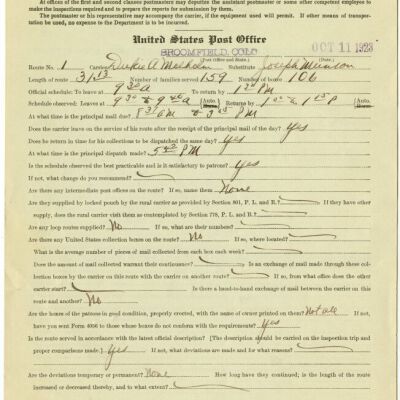 At offices of the first and second classes postmasters may deputize the assistant postmaster or some other competent employee to
make the inspections required and to prepare the reports for submission to them.
The postmaster or his representative may accompany the carrier, if the equipment used will permit. If other means of transporta-
tion be used, no expense to the Department is to be incurred.
United States Post Office
BROOMFIELD, COLO OCT 11 1923
(Post Office and State.) (Date.)
Route No. 1 Carrier A Substitute Joseph
Length of route 31.13 Number of families served 159 Number of boxes 106
Official schedule: To leave at 9 30 A Return by 1 PM
Schedule observed: Leaves at 9 30 to 9 A (Auto.) Return by 1 to 1 P (Auto.)
At what time is principal mail due? 8 AM to 3 PM
Does the carrier leave on the service of his route after the receipt of the principal mail of the day? Yes
Does he return in time for his collections to be dispatched the same day? Yes
At what time is the principal dispatch made? 5 PM
Is the schedule observed the best practicable and is it satisfactory to patrons? Yes
If not, what change do you recommend?
Are there any intermediate post offices on the route? If so, name them None
Are they supplied by locked pouch by the rural carrier as provided by Section 801, P. L. and R.? If they have other
supply, does the rural carrier visit them as contemplated by Section 778, P. L. and R.?
Are any loop routes supplied? No If so, what are their numbers?
Are there any United States collection boxes on the route? No If so, where located?
What is the average number of pieces of mail collected from each box each week?
Does the amount of mail collected warrant their continuance? Is an exchange of mail made through these col-
lection boxes by the carrier on this route with the carrier on another route? If so, from what office does the other
carrier start? Is there a hand-to-hand exchange of mail between the carrier on this
route and another? No
Are the boxes of the patrons in good condition, properly erected, with the name of owner printed on them? Not all If not,
have you sent Form 4056 to those whose boxes do not conform the requirements? Yes
Is the route served in accordance with the latest official description? [The description should be carried on the inspection trip and
proper comparisons made.] Yes If not, what deviations are made and for what reasons?
Are the deviations temporary or permanent? None How long have they continued; is the length of the route
increased or decreased thereby, and to what extent?